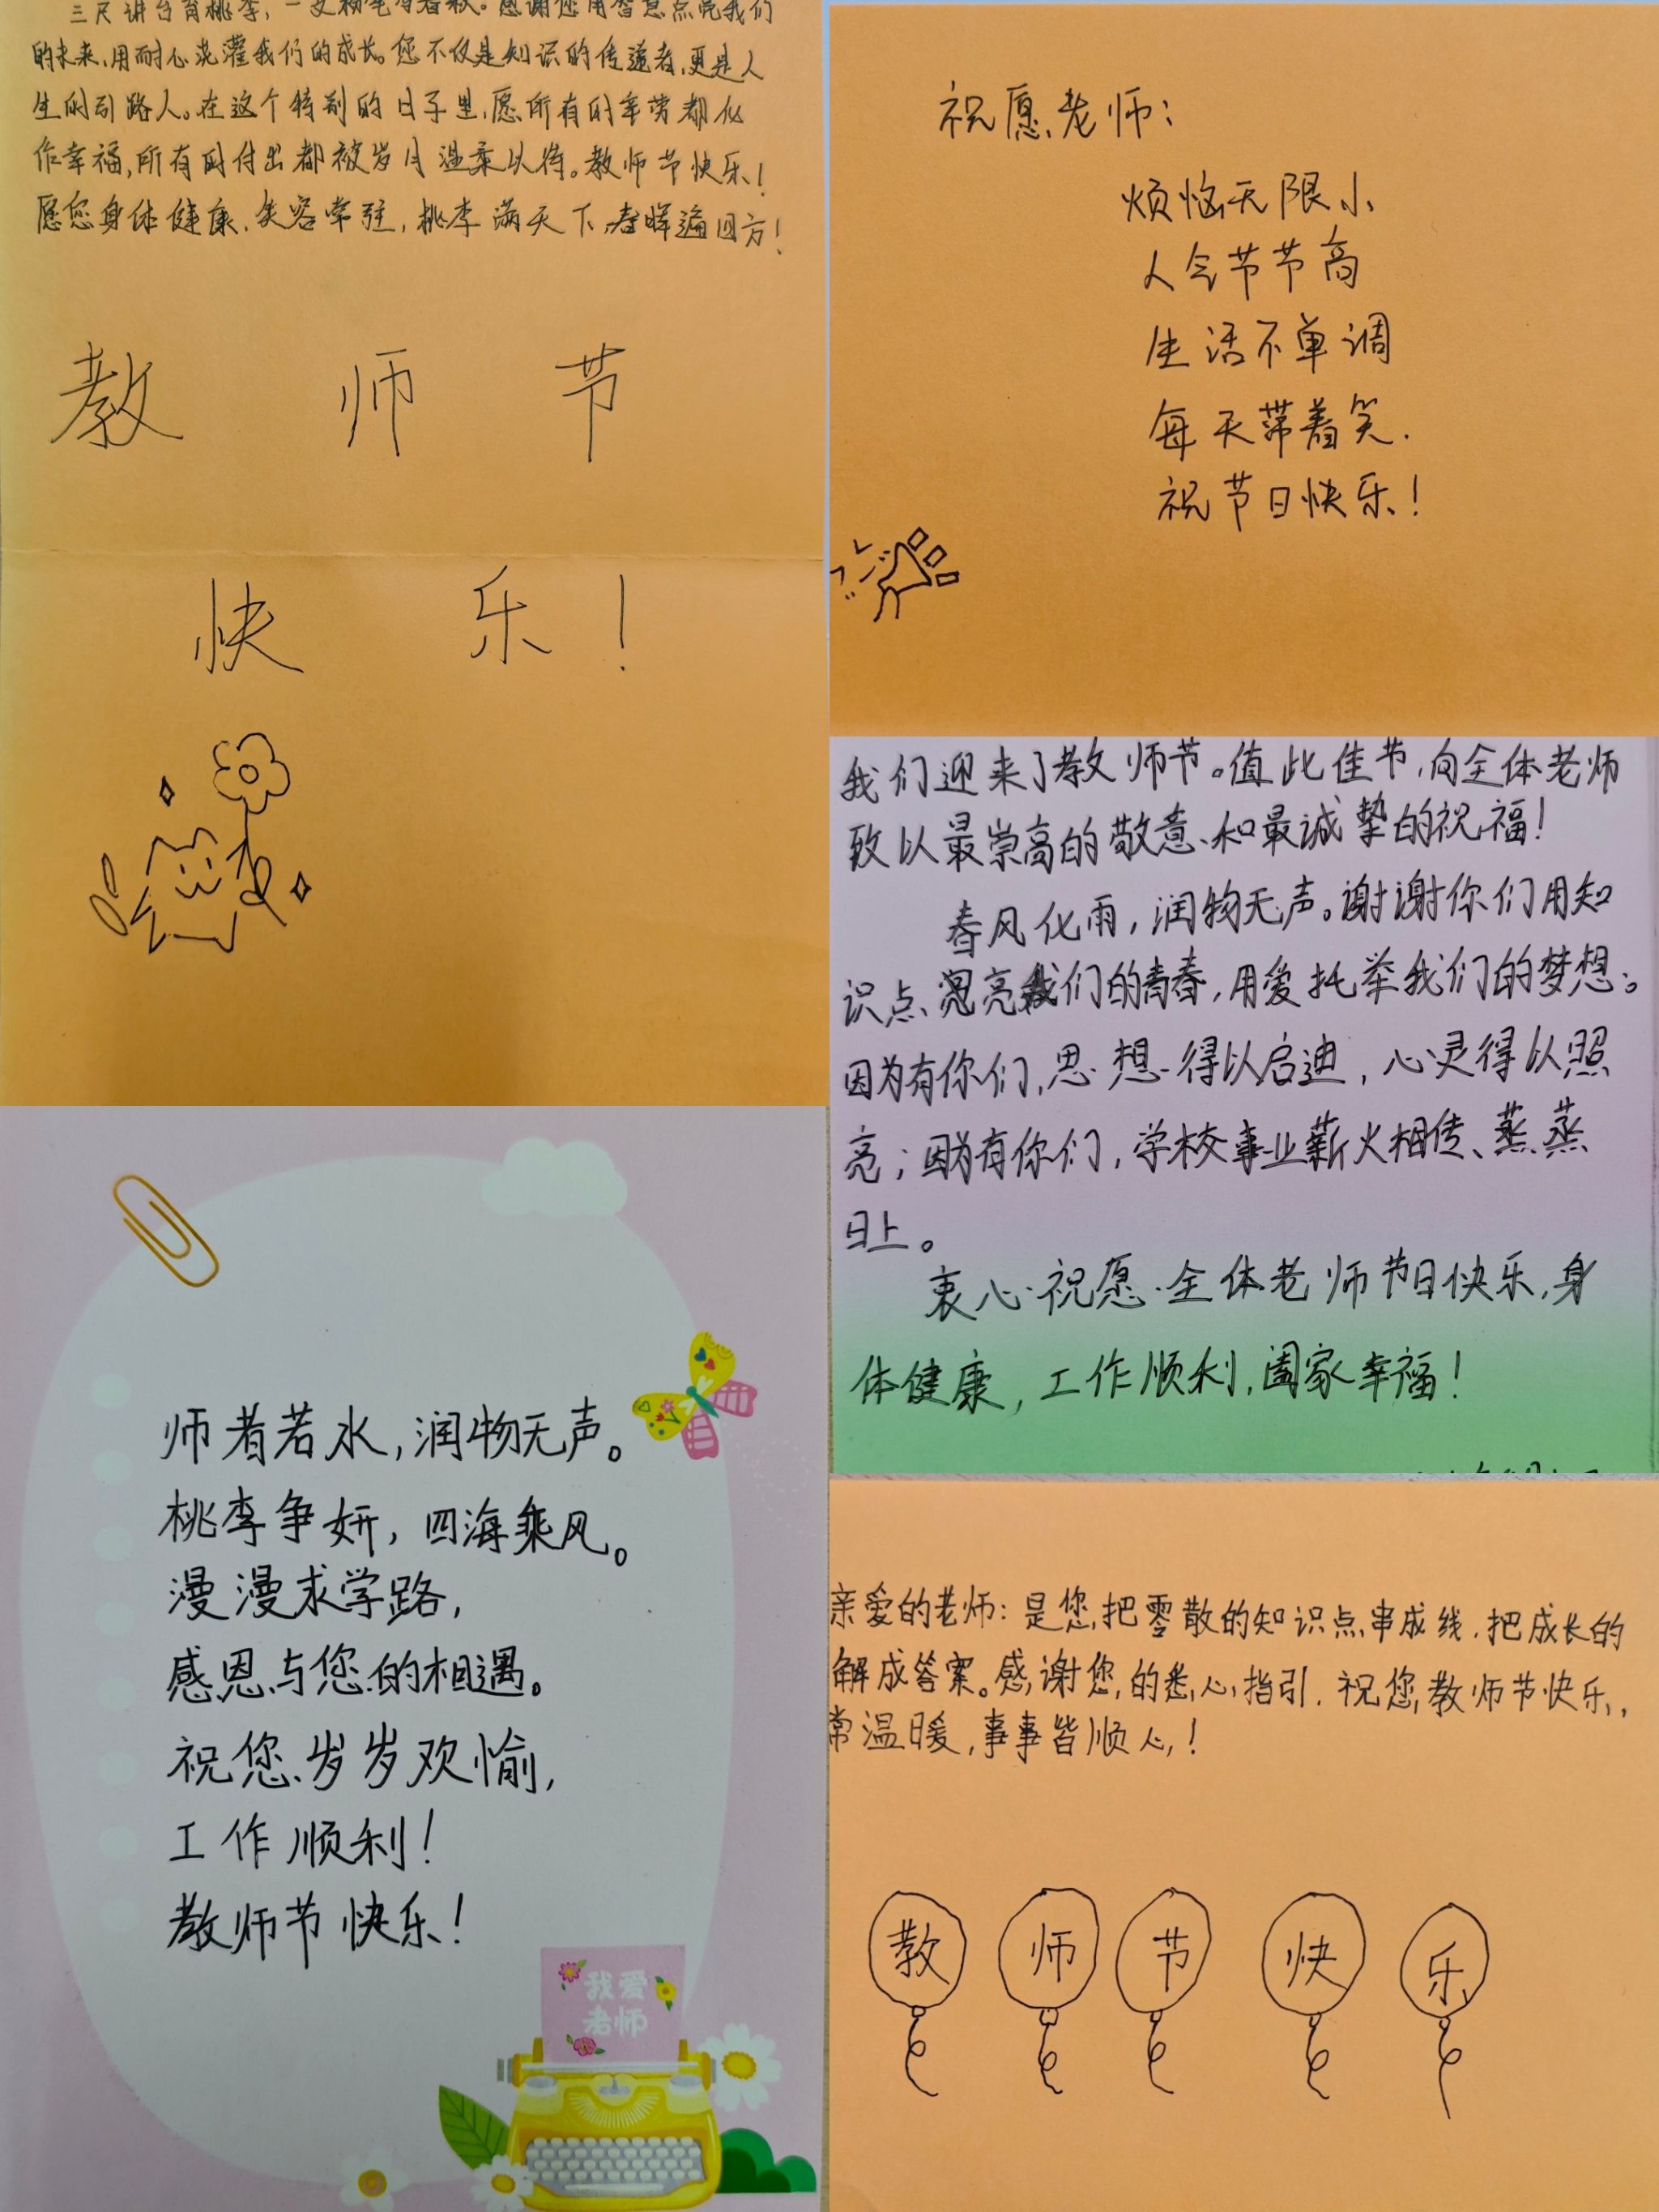 三尺讲台育桃李，一支粉笔写春秋。感谢您用智慧点亮我们
的未来，用耐心浇灌我们的成长。您不仅是知识的传道者，更是人
生的引路人。在这个特别的日子里，愿所有的辛劳都化
作幸福，所有的付出都被岁月温柔以待。教师节快乐！
愿您身体健康，笑容常驻，桃李满天下，春晖遍四方！
教师节
快乐！
祝愿老师：
烦恼无限小
人气节节高
生活不单调
每天带着笑.
祝节日快乐！
我们迎来了教师节。值此佳节，向全体老师
致以最崇高的敬意和最诚挚的祝福！
春风化雨，润物无声。谢谢你们用知
识点亮我们的青春，用爱托举我们的梦想。
因为有你们，思想得以启迪，心灵得以照
亮；因为有你们，学校事业薪火相传、蒸蒸
日上。
衷心祝愿全体老师节日快乐，身
体健康，工作顺利，阖家幸福！
师者若水，润物无声。
桃李争妍，四海乘风。
漫漫求学路，
感恩与您的相遇。
祝您岁岁欢愉，
工作顺利！
教师节快乐！
我爱
老师
亲爱的老师：是您把零散的知识点串成线，把成长的
解成答案。感谢您的悉心指引．祝您教师节快乐，
常温暖，事事皆顺心！
教师节快乐